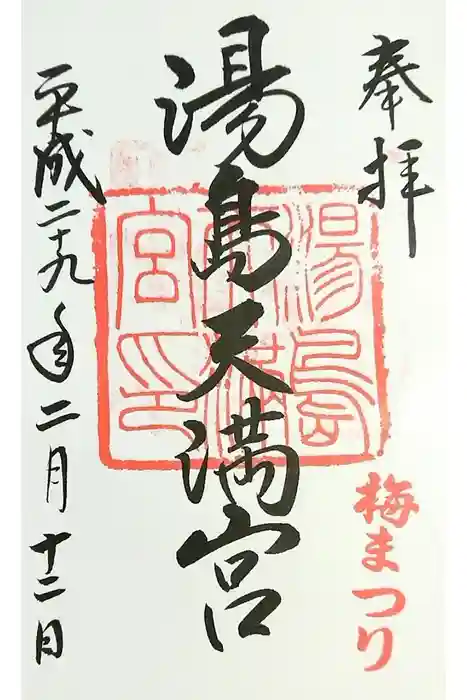 奉拝
梅まつり
湯島天満宮
湯島天満宮印
平成二十九年二月十二日